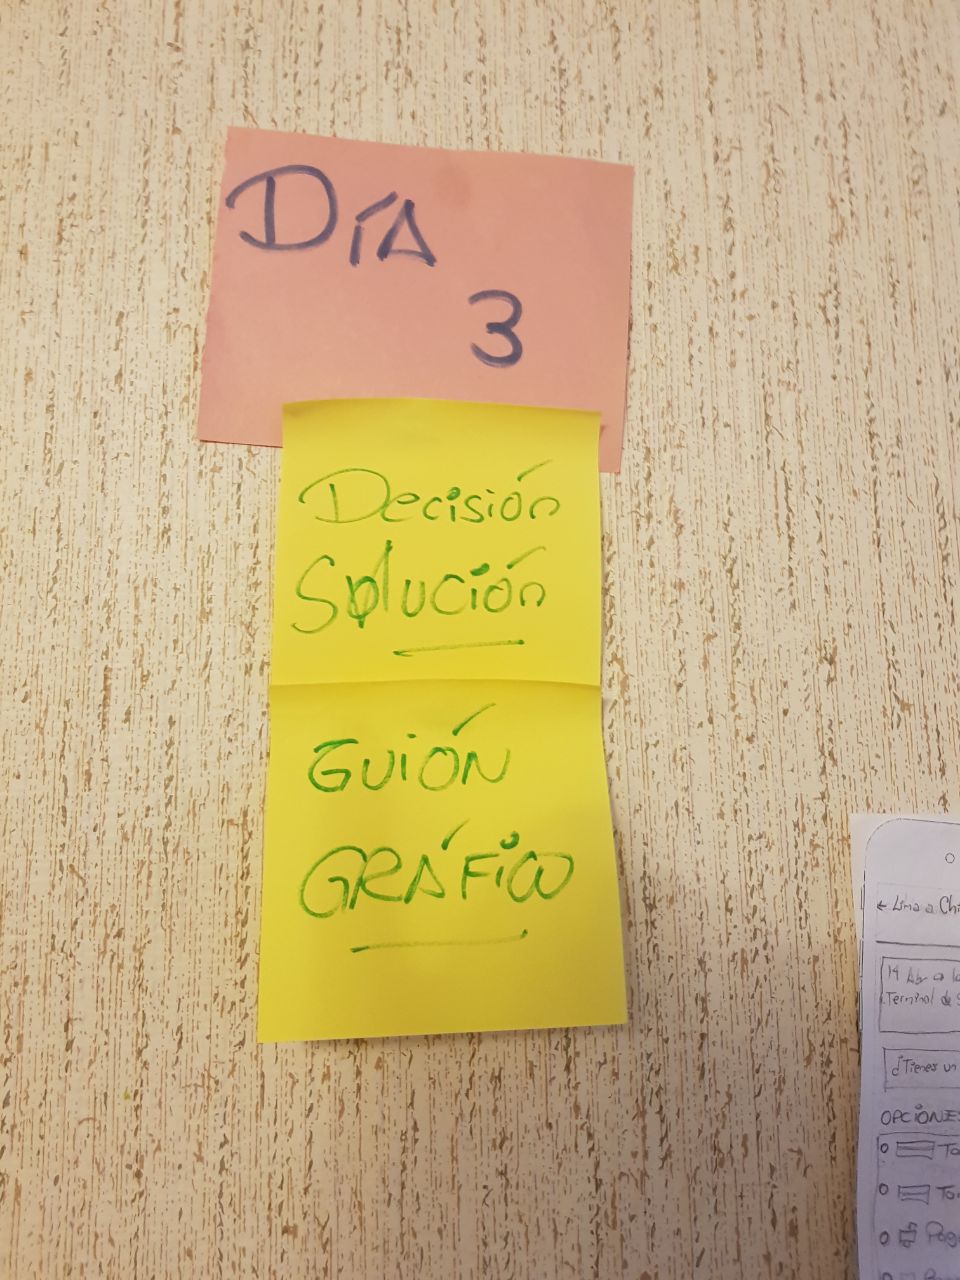 DíA
3
Decisión
Solución
GUIÓN
GRÁFiCO
← Lima a
14
Terminal de
¿Tienes un
OPCIONES